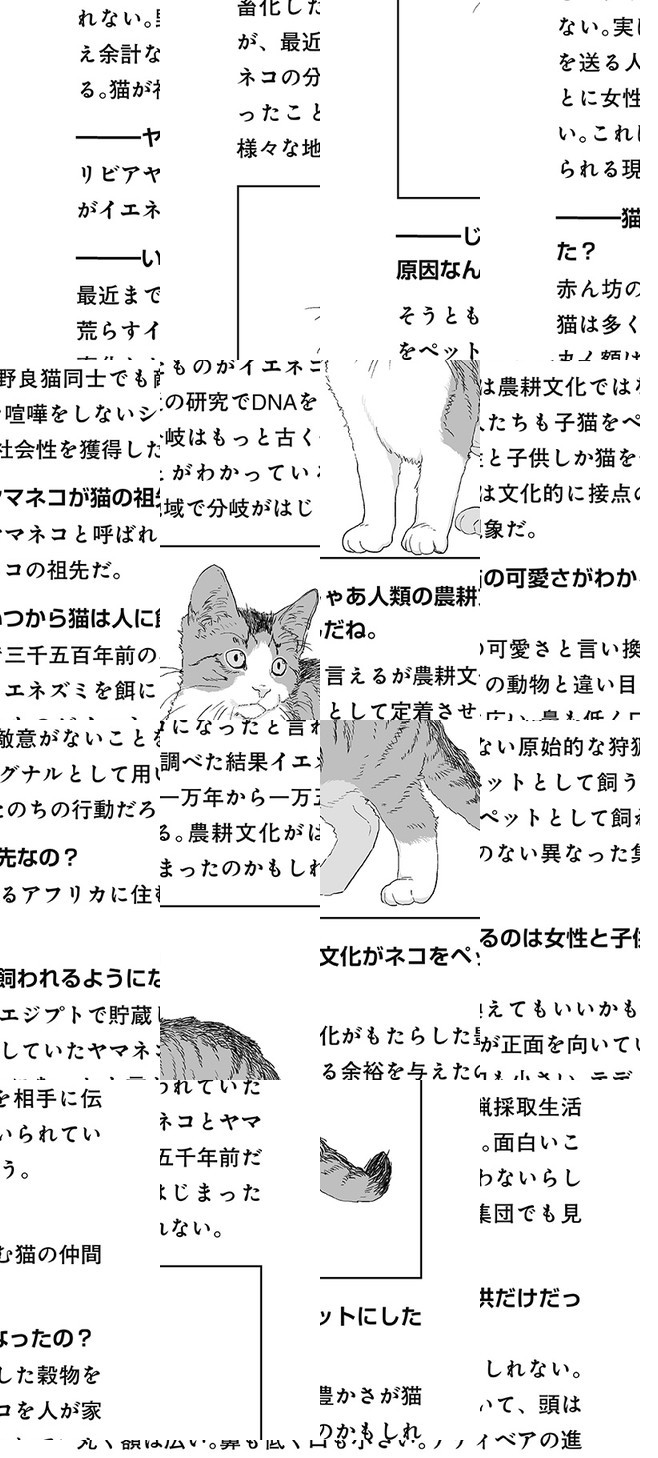 れない。野良猫同士でも敵意がないことを相手に伝
え余計な喧嘩をしないシグナルとして用いられてい
る。猫が社会性を獲得したのちの行動だろう。
――ヤマネコが猫の祖先なの？
リビアヤマネコと呼ばれるアフリカに住む猫の仲間
がイエネコの祖先だ。
――いつから猫は人に飼われるようになったの？
最近まで三千五百年前のエジプトで貯蔵した穀物を
荒らすイエネズミを餌にしていたヤマネコを人が家
畜化したものがイエネコになったと言われていた
が、最近の研究でDNAを調べた結果イエネコとヤマ
ネコの分岐はもっと古く一万年から一万五千年前だ
ったことがわかっている。農耕文化がはじまった
様々な地域で分岐がはじまったのかもしれない。
――じゃあ人類の農耕文化がネコをペットにした
原因なんだね。
そうとも言えるが農耕文化がもたらした豊かさが猫
をペットとして定着させる余裕を与えたのかもしれ
ない。実は農耕文化ではない原始的な狩猟採取生活
を送る人たちも子猫をペットとして飼う。面白いこ
とに女性と子供しか猫をペットとして飼わないらし
い。これは文化的に接点のない異なった集団でも見
られる現象だ。
――猫の可愛さがわかるのは女性と子供だけだっ
た？
赤ん坊の可愛さと言い換えてもいいかもしれない。
猫は多くの動物と違い目が正面を向いていて、頭は
丸く額は広い。鼻も低く口も小さい。テディベアの進